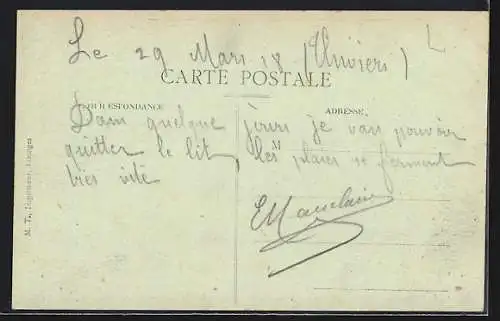 Le 29 Mars 18 (Thiviers)
CARTE POSTALE
CORRESPONDANCE
ADRESSE
Dans quelque jours je vais pouvoir
quitter le lit les plaies se ferment
très vite
M
M. T.,
Limoges